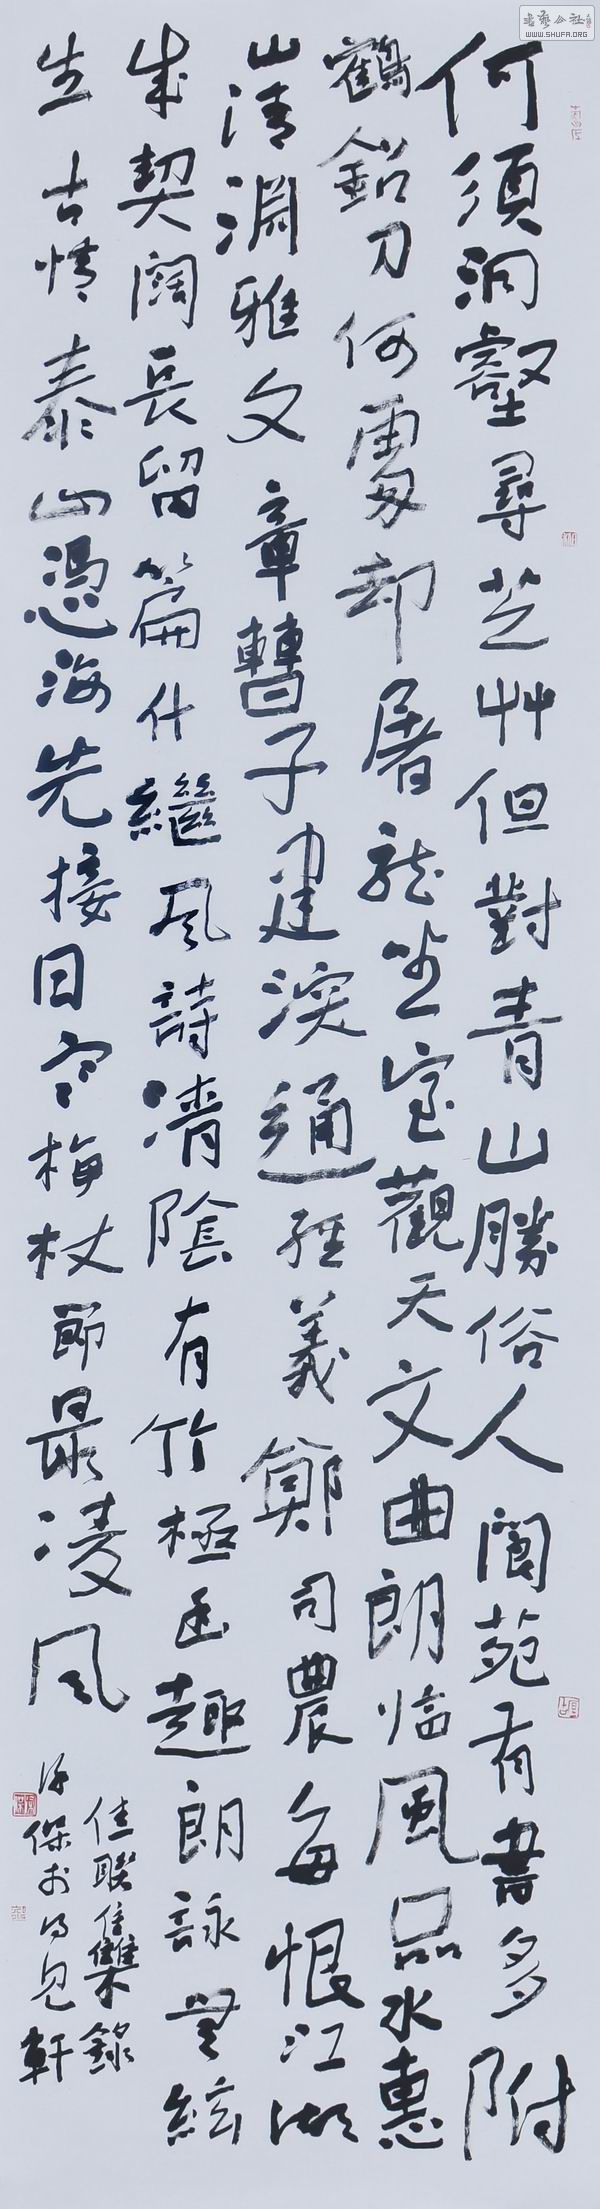 书艺公社
WWW.SHUFA.ORG
何須洞壑尋芝艸但對青山勝俗人閬苑有書多附
鶴鉛刀何處却屠龍坐室觀天文曲朗臨風品水惠
山清淵雅文章曹子建深通經義鄭司農每恨江湖
成契闊長留篇什繼風詩清陰有竹極幽趣朗詠無絃
生古情泰山憑海先接日寒梅杖節最凌風
佳聯集錄
保於見軒